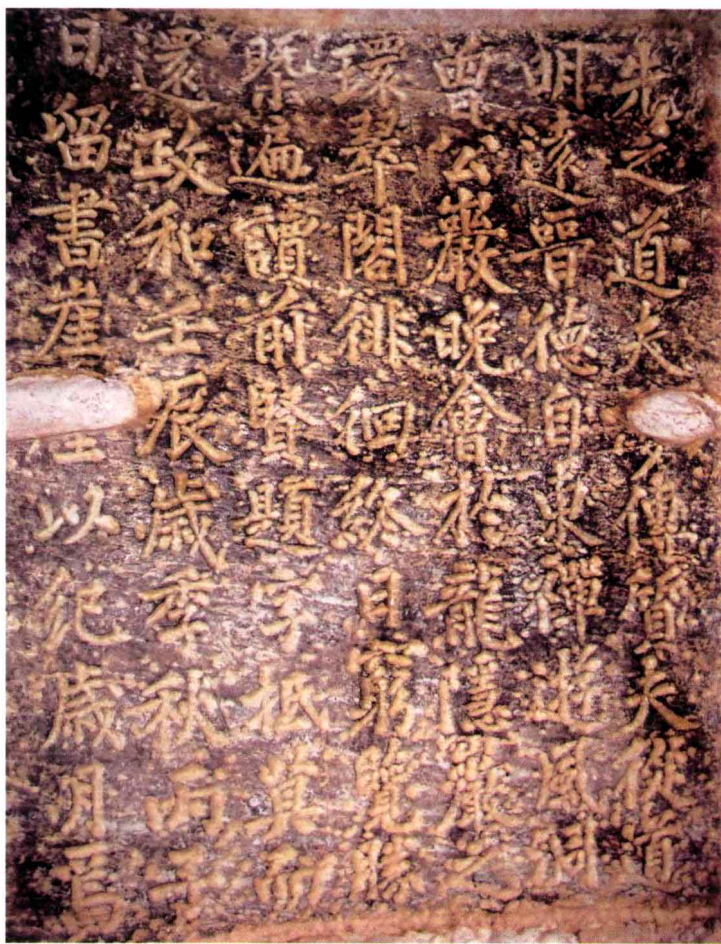 先之道夫傅質夫從道
明遠晉德自東禪遊風洞
曾公巖晚會於龍隱巖之
環翠閣徘徊終日窮覽勝
槩遍讀前賢題字抵莫而
還政和壬辰歲季秋丙子
日留書崖壁以紀歲月焉